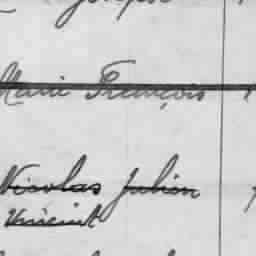 Marie François
Nicolas Julien
Vincent